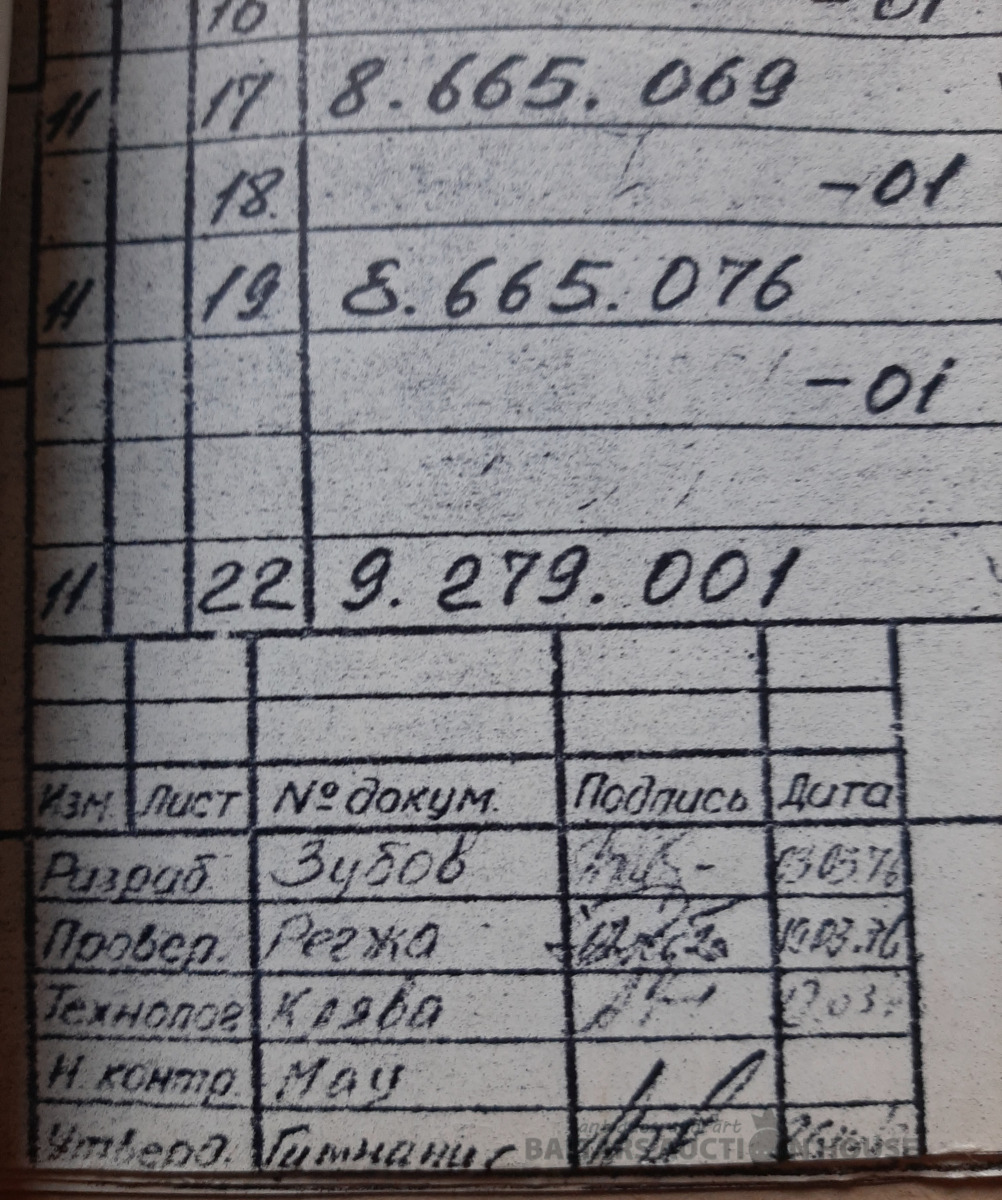 16 -01
11 17 8.665.069
18. -01
11 19 8.665.076
-01
11 22 9.279.001
Изм. Лист № докум. Подпись Дата
Разраб. Зубов 03.03.76
Провер. Регжа 19.03.76
Технолог Клява
Н. контр. Мау
Утверд.
antiques books art
BALTERS AUCTION HOUSE